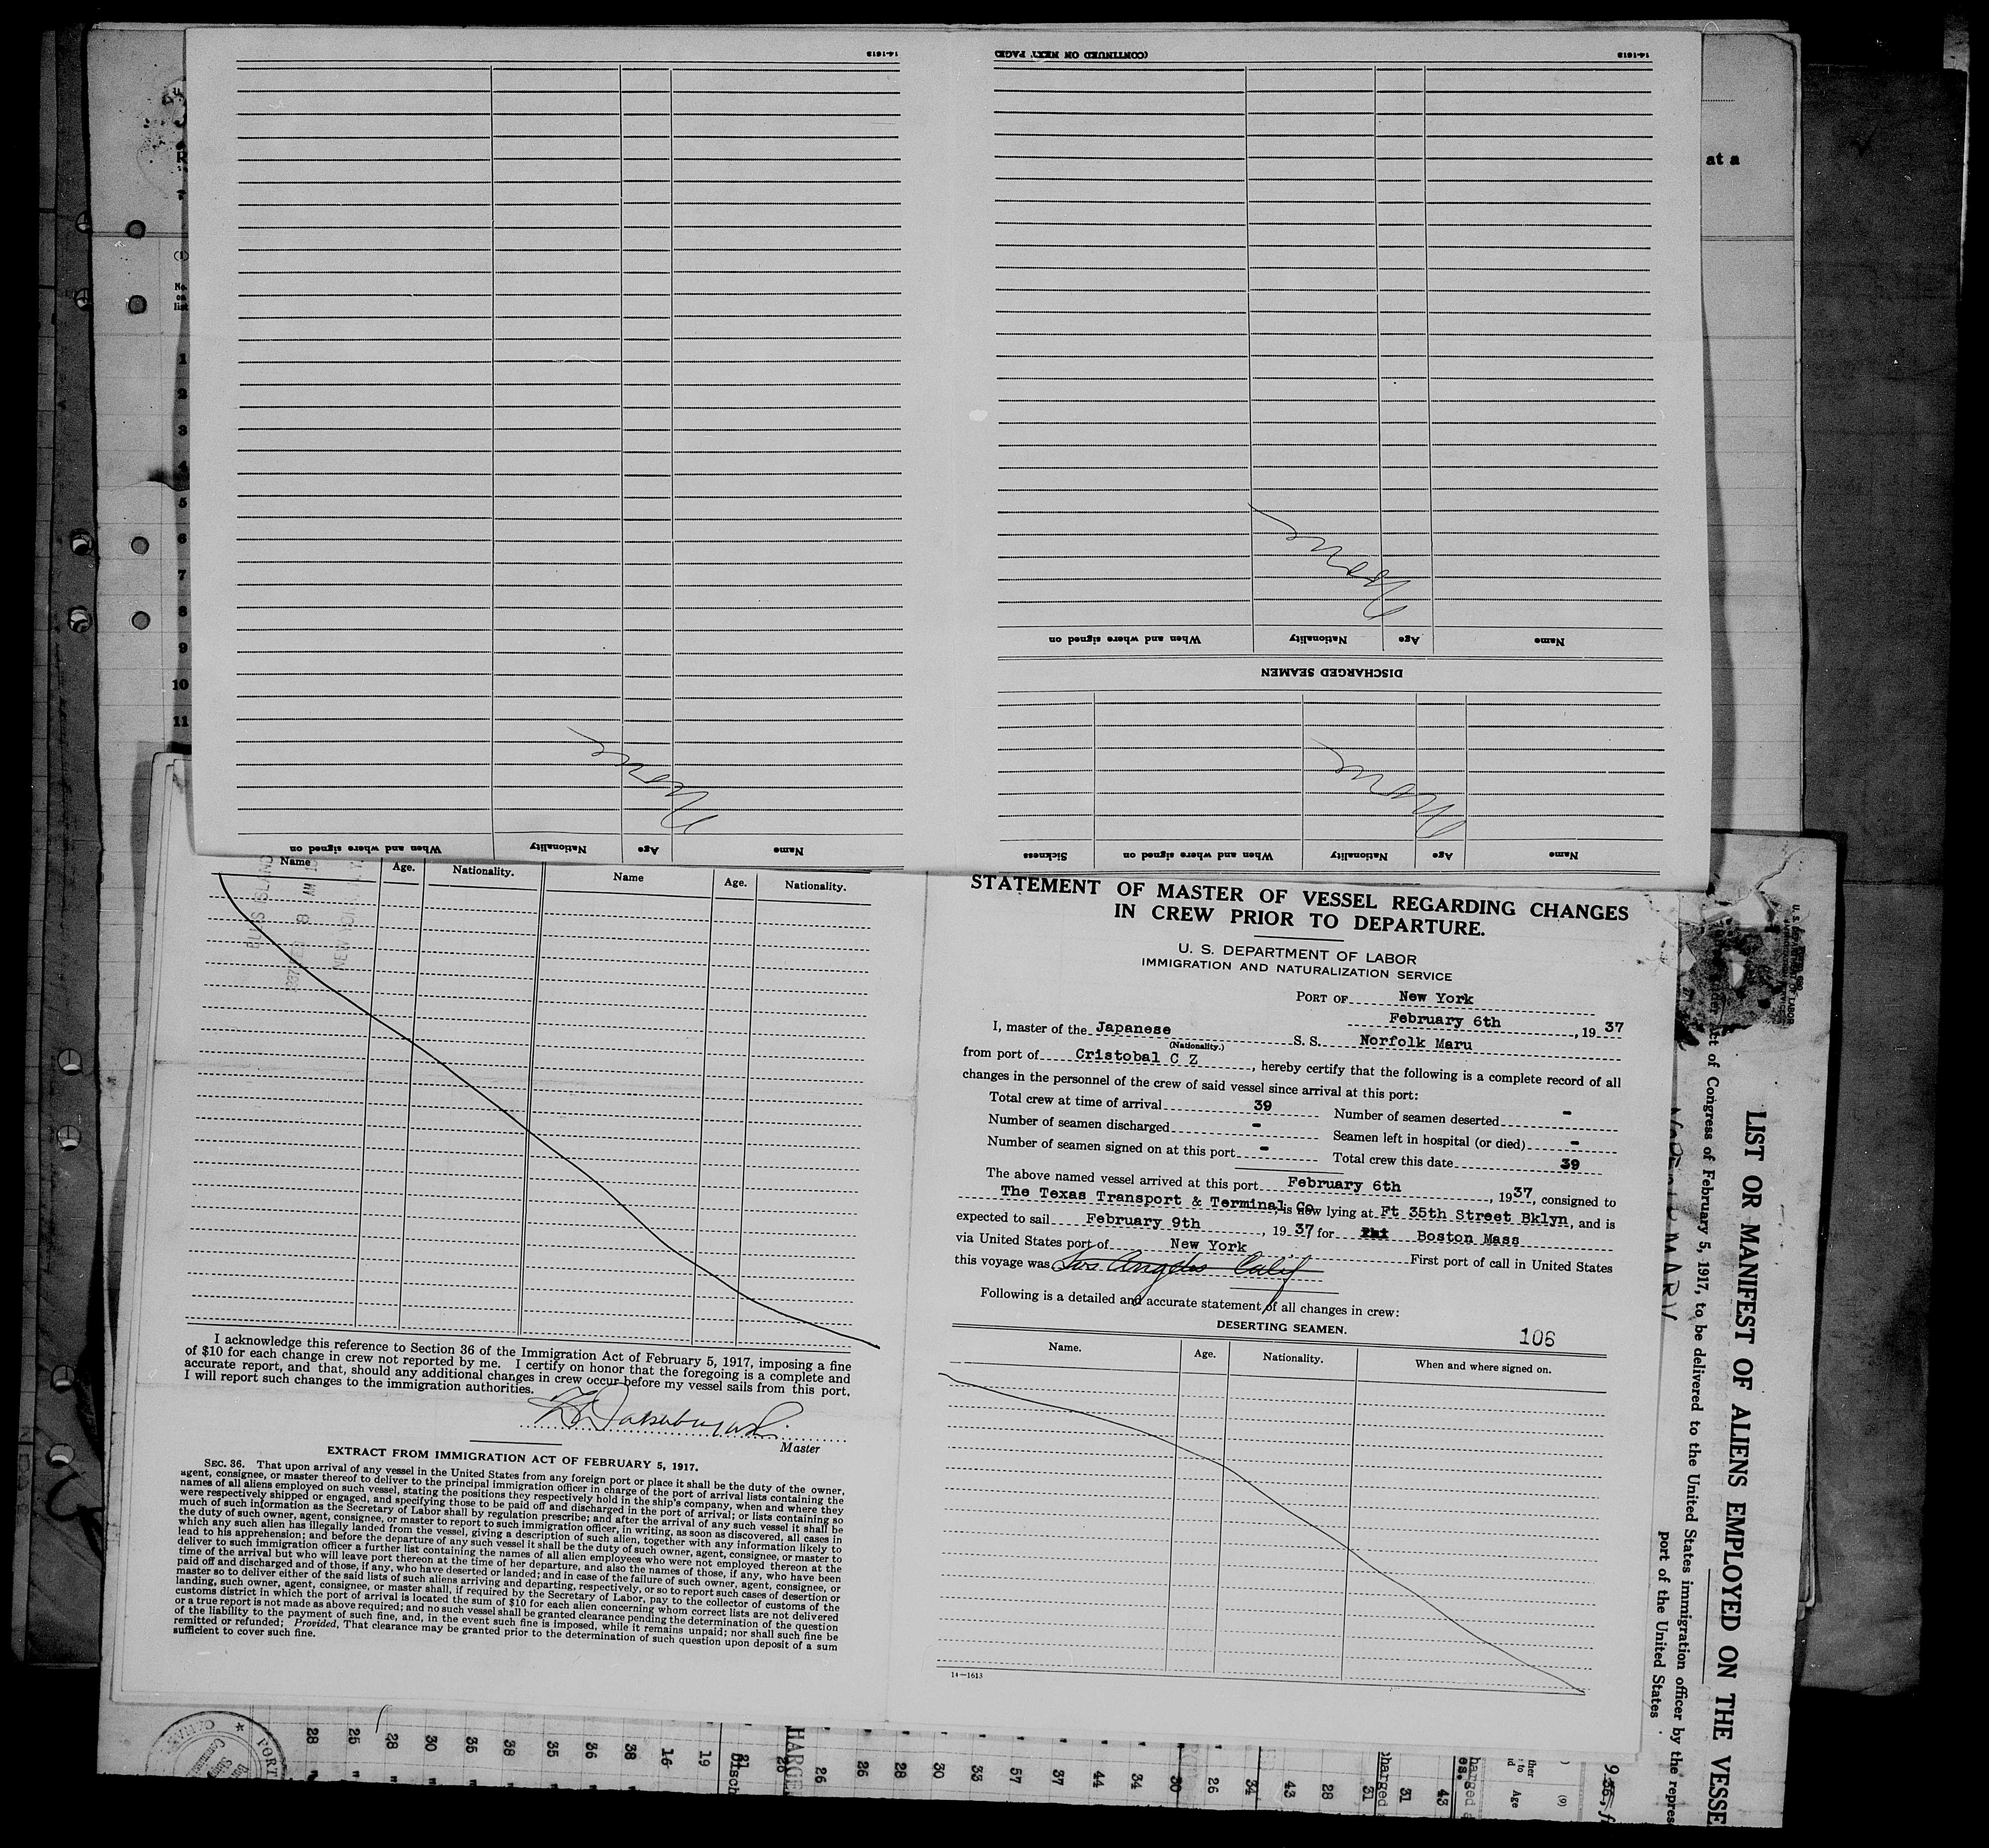 14-1613
(CONTINUED ON NEXT PAGE)
14-1613
None
None
None
Name Age Nationality When and where signed on
DISCHARGED SEAMEN
Name Age Nationality When and where signed on
Name Age Nationality When and where signed on Sickness
at a
No.
on
list
1
2
3
4
5
6
7
8
9
10
11
Name Age. Nationality. Name Age. Nationality.
ELLIS ISLAND
I acknowledge this reference to Section 36 of the Immigration Act of February 5, 1917, imposing a fine
of $10 for each change in crew not reported by me. I certify on honor that the foregoing is a complete and
accurate report, and that, should any additional changes in crew occur before my vessel sails from this port,
I will report such changes to the immigration authorities.
Master
EXTRACT FROM IMMIGRATION ACT OF FEBRUARY 5, 1917.
SEC. 36. That upon arrival of any vessel in the United States from any foreign port or place it shall be the duty of the owner,
agent, consignee, or master thereof to deliver to the principal immigration officer in charge of the port of arrival lists containing the
names of all aliens employed on such vessel, stating the positions they respectively hold in the ship's company, when and where they
were respectively shipped or engaged, and specifying those to be paid off and discharged in the port of arrival; or lists containing so
much of such information as the Secretary of Labor shall by regulation prescribe; and after the arrival of any such vessel it shall be
the duty of such owner, agent, consignee, or master to report to such immigration officer, in writing, as soon as discovered, all cases in
which any such alien has illegally landed from the vessel, giving a description of such alien, together with any information likely to
lead to his apprehension; and before the departure of any such vessel it shall be the duty of such owner, agent, consignee, or master to
deliver to such immigration officer a further list containing the names of all alien employees who were not employed thereon at the
time of the arrival but who will leave port thereon at the time of her departure, and also the names of those, if any, who have been
paid off and discharged and of those, if any, who have deserted or landed; and in case of the failure of such owner, agent, consignee, or
master so to deliver either of the said lists of such aliens arriving and departing, respectively, or so to report such cases of desertion or
landing, such owner, agent, consignee, or master shall, if required by the Secretary of Labor, pay to the collector of customs of the
customs district in which the port of arrival is located the sum of $10 for each alien concerning whom correct lists are not delivered
or a true report is not made as above required; and no such vessel shall be granted clearance pending the determination of the question
of the liability to the payment of such fine, and, in the event such fine is imposed, while it remains unpaid; nor shall such fine be
remitted or refunded; Provided, That clearance may be granted prior to the determination of such question upon deposit of a sum
sufficient to cover such fine.
STATEMENT OF MASTER OF VESSEL REGARDING CHANGES
IN CREW PRIOR TO DEPARTURE.
U. S. DEPARTMENT OF LABOR
IMMIGRATION AND NATURALIZATION SERVICE
PORT OF New York
February 6th, 1937
I, master of the Japanese S. S. Norfolk Maru
(Nationality.)
from port of Cristobal C Z, hereby certify that the following is a complete record of all
changes in the personnel of the crew of said vessel since arrival at this port:
Total crew at time of arrival 39 Number of seamen deserted -
Number of seamen discharged - Seamen left in hospital (or died) -
Number of seamen signed on at this port - Total crew this date 39
The above named vessel arrived at this port February 6th, 1937, consigned to
The Texas Transport & Terminal Co, is now lying at Ft 35th Street Bklyn, and is
expected to sail February 9th, 1937 for Boston Mass
via United States port of New York. First port of call in United States
this voyage was Los Angeles Calif
Following is a detailed and accurate statement of all changes in crew:
DESERTING SEAMEN.
106
Name. Age. Nationality. When and where signed on.
14-1613
LIST OR MANIFEST OF ALIENS EMPLOYED ON THE VESSE
Act of Congress of February 5, 1917, to be delivered to the United States immigration officer by the repres
port of the United States
28 25 28 30 35 38 35 36 38 16 19 26 26 28 30 33 57 37 44 34 30 26 34 43 28 31 31 43
HARGE
Age
(9)
PORT